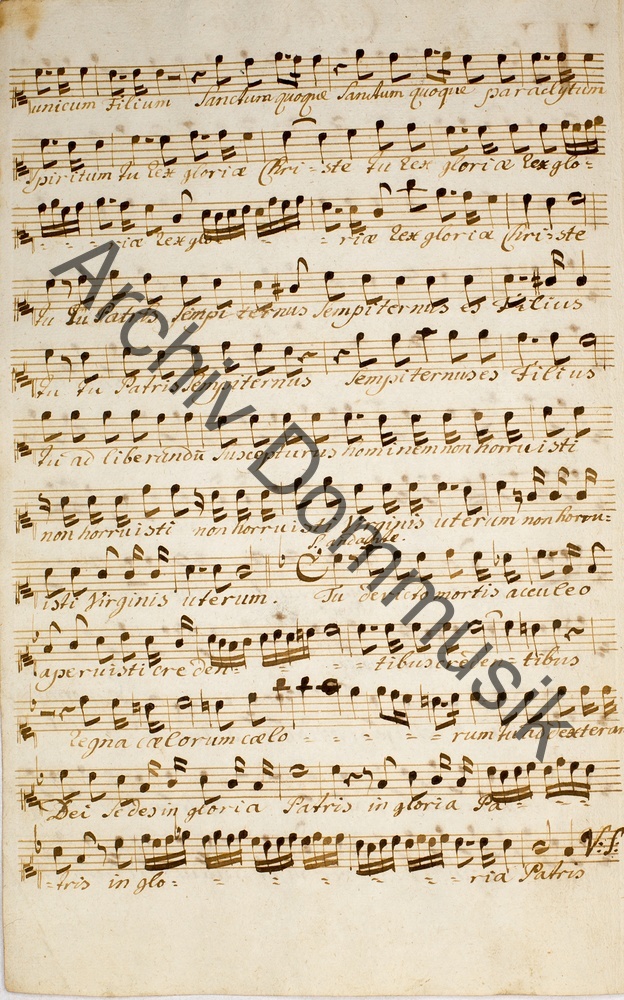 unicum Filium Sanctum quoque Sanctum quoque paraclytum
Spiritum tu Rex gloriæ Chri-ste tu Rex gloriæ Rex glo-
- - - riæ Rex glo - - - riæ Rex gloriæ Chri-ste
tu tu Patris Sempiternus Sempiternus es Filius
tu tu Patris Sempiternus Sempiternus es Filius
tu ad liberandū suscepturus hominem non horruisti
non horruisti non horruisti Virginis uterum non horru-
isti Virginis uterum. Tu devicto mortis acculeo
aperuisti creden- - - - tibus creden-tibus
Regna cælorum cælo - - - - - rum tu ad dexteram
Dei sedes in gloria Patris in gloria Pa- - -
-tris in glo- - - - - - - ria Patris
V: S:
Archiv Dommusik